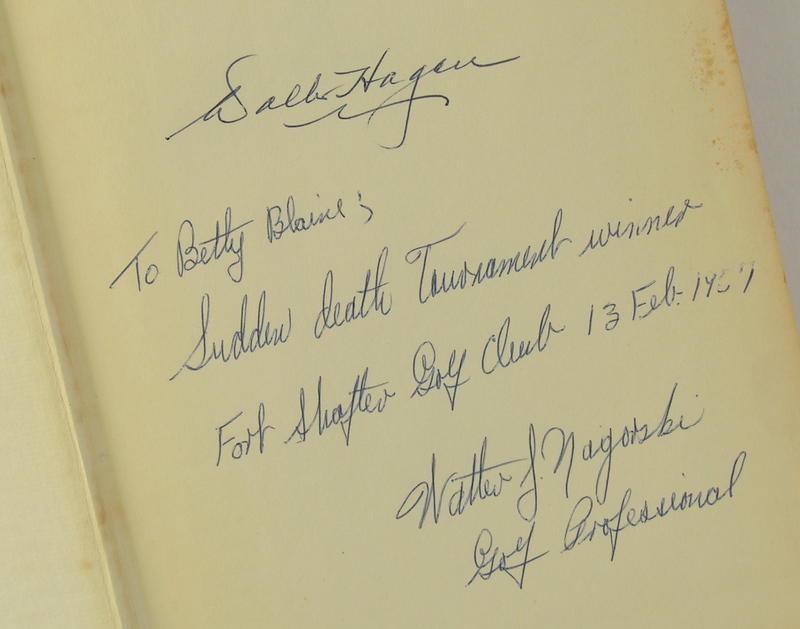 Walter Hagen
To Betty Blaine;
Sudden death Tournament winner
Fort Shafter Golf Club 13 Feb. 1957
Walter J. Nagorski
Golf Professional